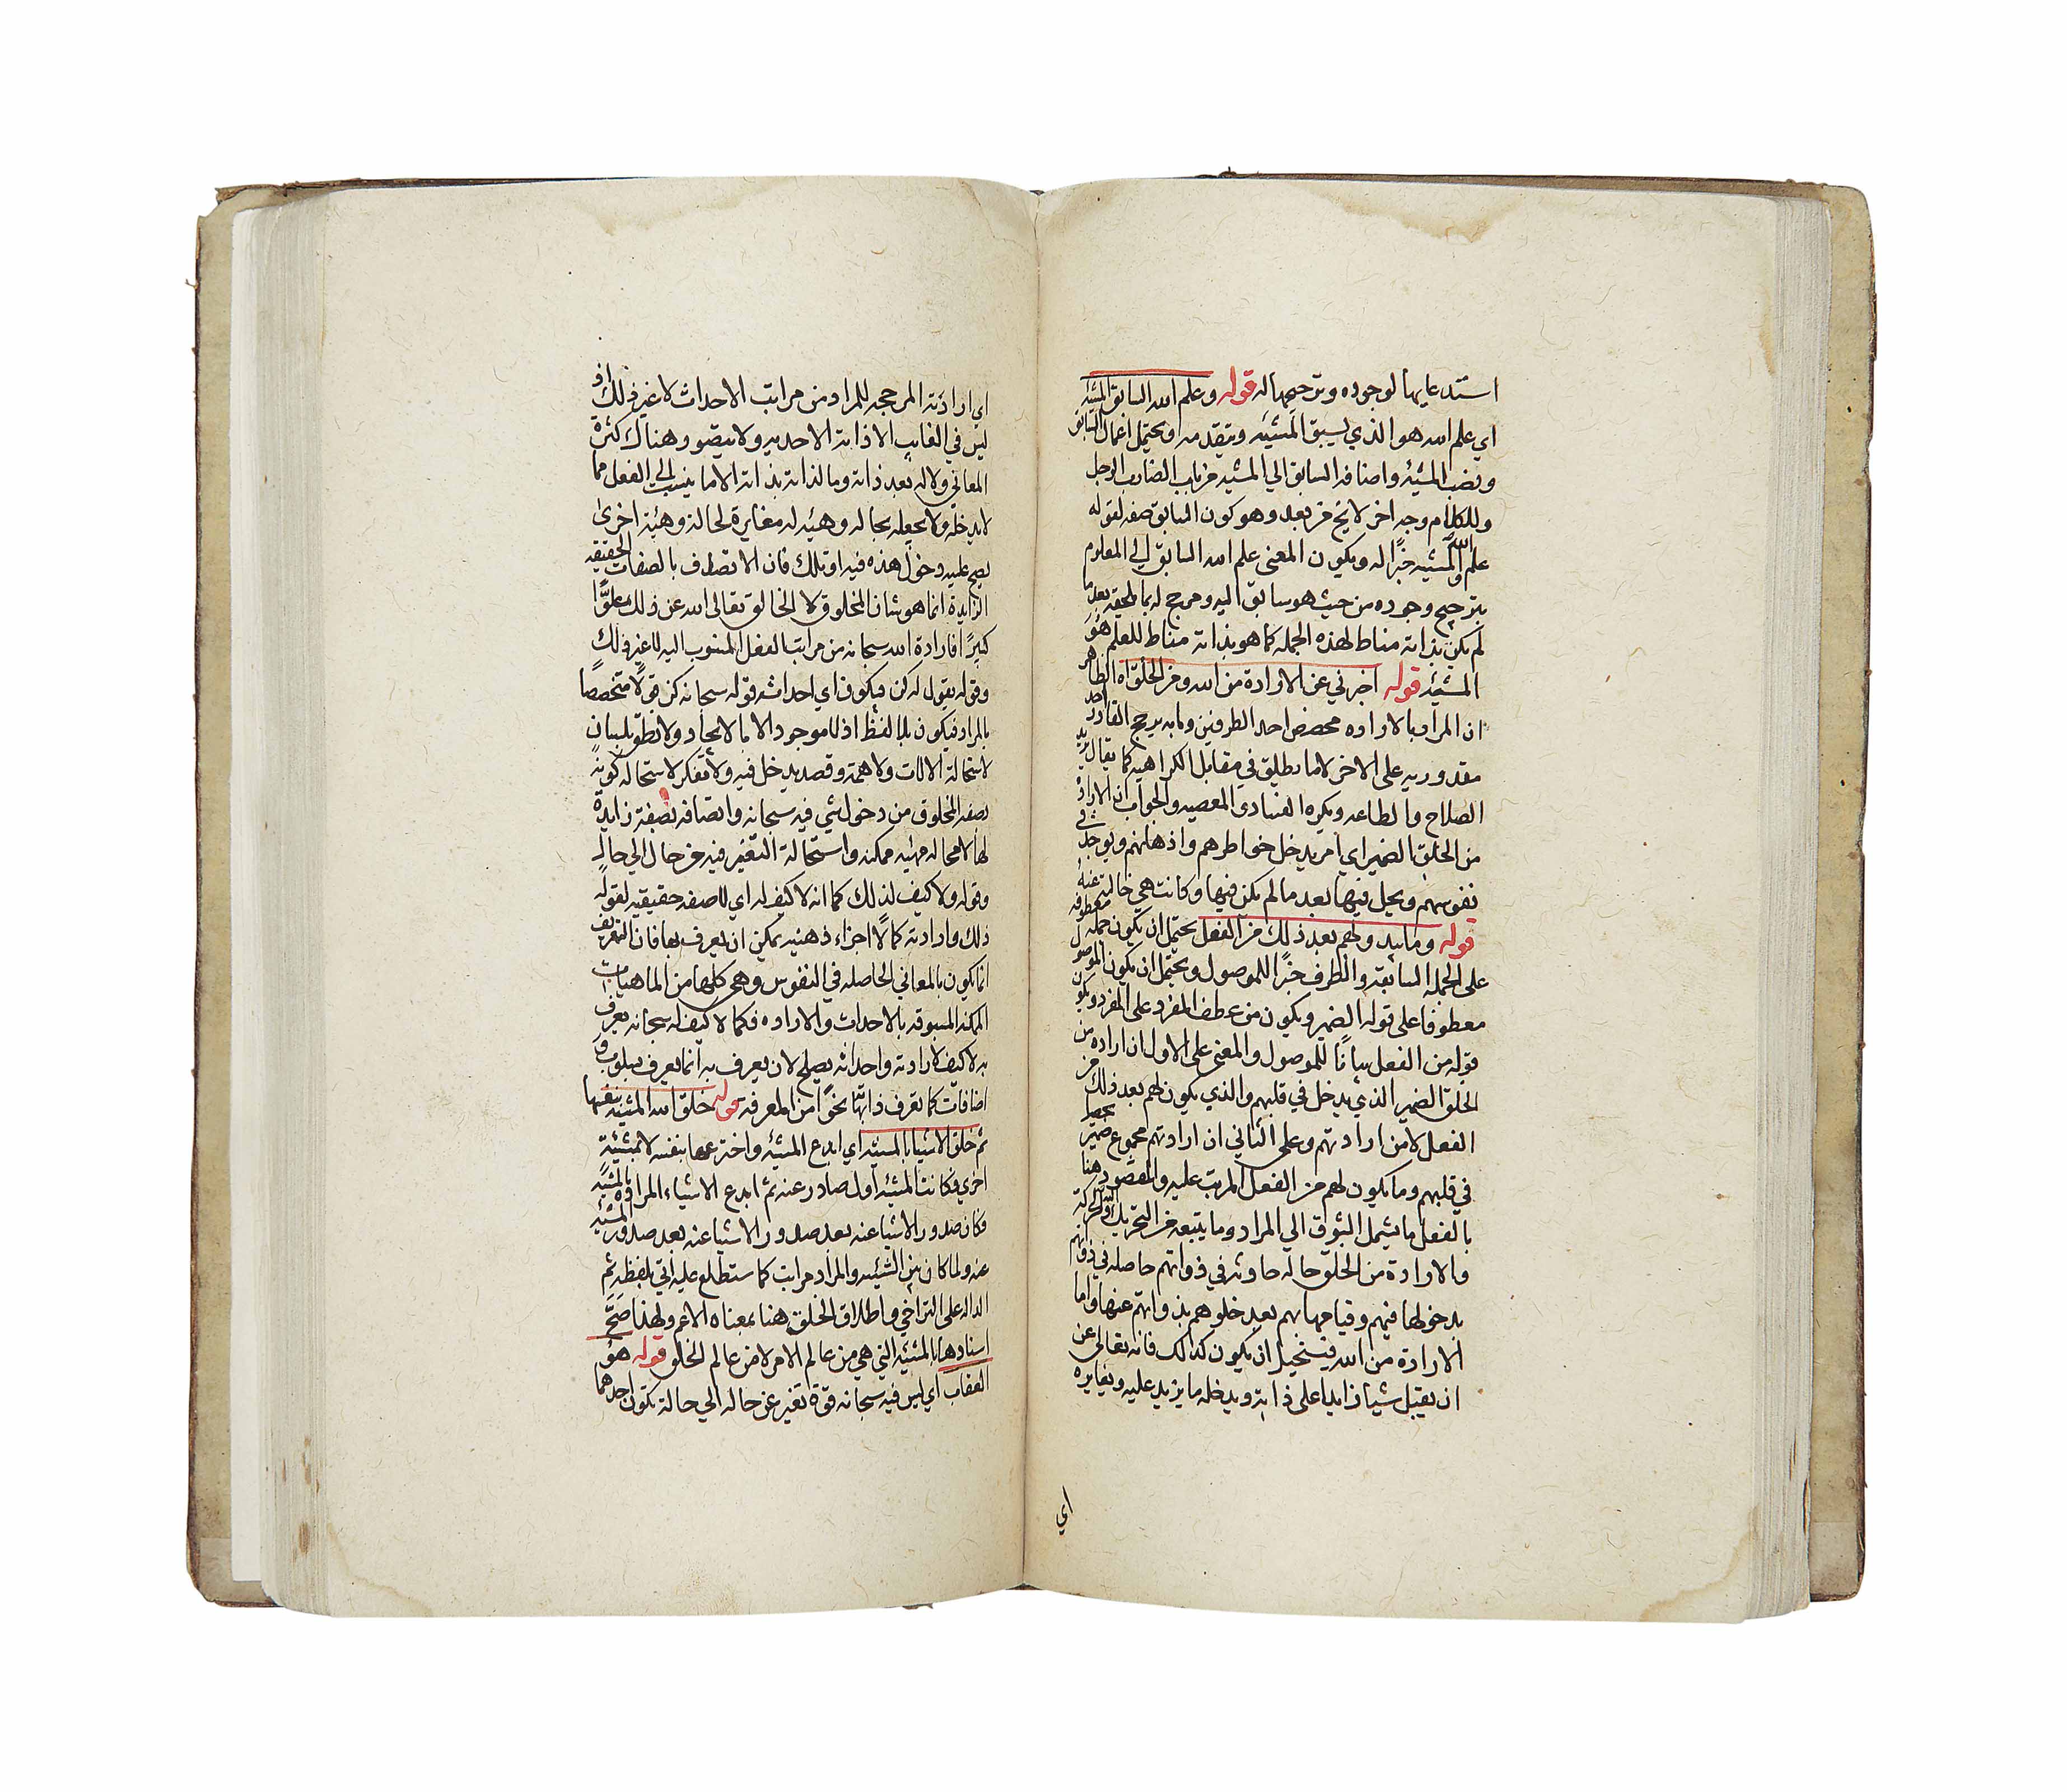 استدعايها لوجوده وترجيحها له قوله وعلم الله السابق المشيئه
اي علم الله هو الذي يسبق المشيئه ويتقدمه ويحتمل اعمال السابق
ونصب المشيئه واضافه السابق الي المشيه من باب الضارب الرجل
وللكلام وجه اخر لا يخ من بعد وهو كون السابق صفه لقوله
علم الله والمشيه خبرًا له ويكون المعنى علم الله السابق الي المعلوم
بترجيح وجوده من حيث هو سابق اليه ومرجح له بما لحقه بعد ما
لم يكن بذاته مناط لهذه الجمله كما هو بذاته مناط للعلم هو
المشيئه قوله اخبرني عن الاراده من الله ومن الخلق اه الظاهر
ان المراد بالاراده مخصص احد الطرفين وما به يرجح القادر احد
مقدوريه على الاخر لا ما يطلق في مقابل الكراهيه كما يقال يريد
الصلاح والطاعه ويكره الفساد والمعصيه والجواب ان الاراده
من الخلق الضمير اي امر يدخل خواطرهم واذهانهم ويوجد في
نفوسهم ويحل فيها بعد ما لم يكن فيها وكانت هي خاليه عنه
قوله وما يبدو لهم بعد ذلك من الفعل يحتمل ان يكون جمله معطوفه
على الجمله السابقه والظرف خبرًا للموصول ويحتمل ان يكون الموصول
معطوفا على قوله الضمير ويكون من عطف المفرد على المفرد ويكون
قوله من الفعل بيانًا للموصول والمعنى على الاول ان اراده من
الخلق الضمير الذي يدخل في قلبهم والذي يكون لهم بعد ذلك من
الفعل لا من ارادتهم وعلى الثاني ان ارادتهم مجموع ضمير يحصل
في قلبهم وما يكون لهم من الفعل المرتب عليه والمقصود هنا
بالفعل ما يشمل الشوق الي المراد وما يتبعه من التحريك والحركة
والارادة من الخلق حاله حادثه في ذواتهم حاصله في ذواتهم
بدخولها فيهم وقيامها بهم بعد خلوهم بذواتهم عنها واما
الارادة من الله فيستحيل ان يكون كذلك فانه تعالى عن
ان يقبل شيا زايدا على ذاته ويدخله ما يزيد عليه ويغايره
اي
اي ارادته المرجحه للمراد من مراتب الاحداث لا غير ذلك اذ
ليس في الغايب الا ذاته الاحديه ولا يتصور هناك كثرة
المعاني ولا له بعد ذاته وما لذاته بذاته الا ما ينسب الي الفعل مما
لا يدخله ولا يجعله بحاله وهيئه له مغايرة لحالة وهيئة اخرى
يصح عليه دخول هذه فيه او تلك فان الاتصاف بالصفات الحقيقيه
الزايدة انما هو شان المخلوق لا الخالق تعالى الله عن ذلك علوًّا
كبيرًا فارادة الله سبحانه من مراتب الفعل المنسوب اليه لا غير ذلك
وقوله يقول له كن فيكون اي احداثه قوله سبحانه كن قولا متخصصا
بالمراد فيكون بلا لفظ اذ لا موجود الا بالايجاد ولا نطق بلسان
لاستحالة الالات ولا همة وقصد يدخل فيه ولا تفكر لاستحاله كونه
بصفه المخلوق من دخول شي فيه سبحانه واتصافه بصفة زايدة
لها لا محاله مهيه ممكنه واستحالة التغير فيه من حال الي حال
وقوله ولا كيف لذلك كما انه لا كيف له اي لا صفه حقيقيه لقوله
ذلك وارادته كما لا اجزاء ذهنيه يمكن ان يعرف بها فان التعريف
انما يكون بالمعاني الحاصله في النفوس وهي كلها من الماهيات
الممكنه المسبوقه بالاحداث والاراده فكما لا كيف له سبحانه يعرف
به لا كيف لارادته واحداثه يصلح لان يعرف به انما يعرف بسلوب و
اضافات كما تعرف ذاته نحوًا من المعرفه قوله خلق الله المشيه بنفسها
ثم خلق الاشيا بالمشيه اي ابدع المشيه واخترعها بنفسه لا بمشيئة
اخري فكانت المشيئه اول صادر عنه ثم ابدع الاشياء المراده بالمشيه
فكان صدور الاشيا عنه بعد صدور الاشيا عنه بعد صدور المشيه
عنه ولما كان بين المشيه والمراد مراتب كما ستطلع عليه اتي بلفظه ثم
الداله على التراخي واطلاق الخلق هنا بمعناه الاعم ولهذا صَحَّ
اسنادها بالمشيه التي هي من عالم الامر لا من عالم الخلق قوله هو
العقاب اي ليس فيه سبحانه قوة تغير عن حاله الي حالة تكون احدهما